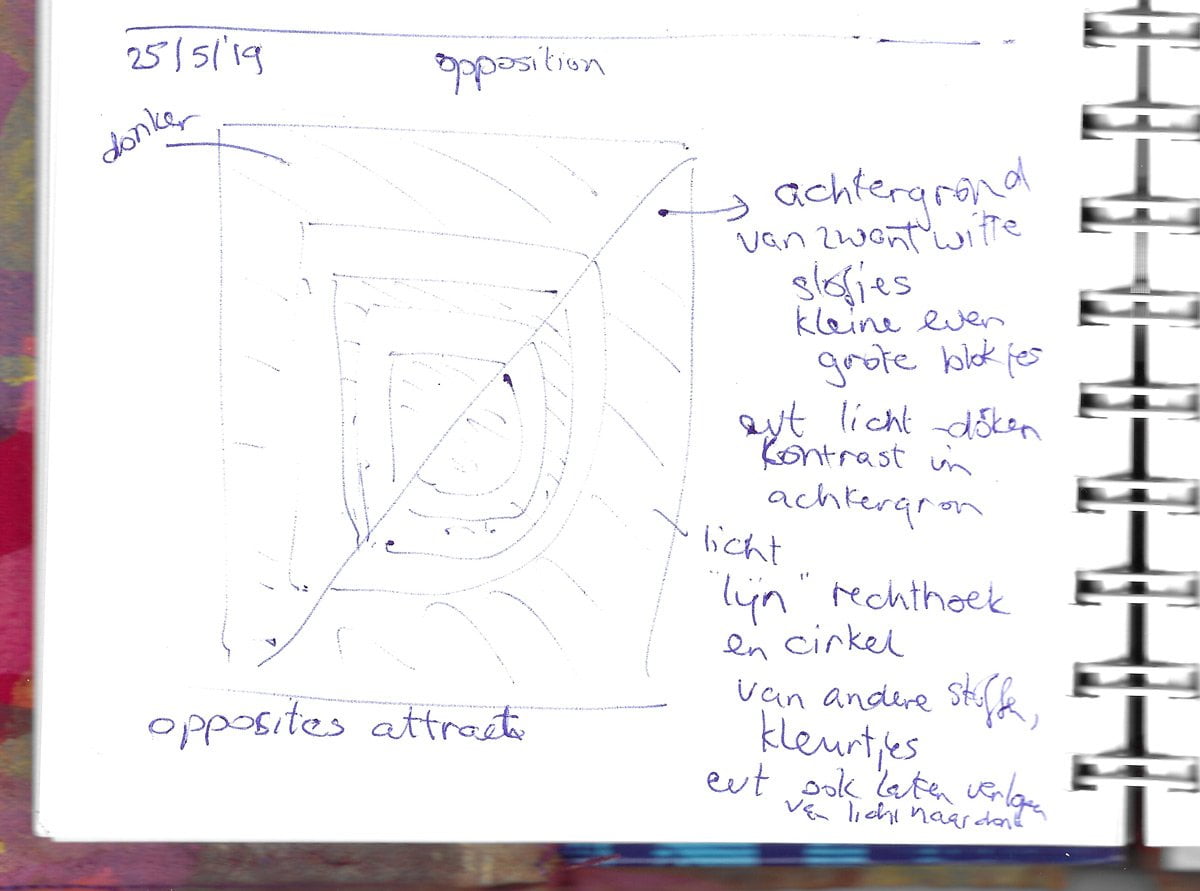 25/5/'19
opposition
donker
achtergrond
van zwart witte
stofjes
kleine even
grote blokjes
evt licht - doken
kontrast in
achtergron
licht
"lijn" rechthoek
en cirkel
van andere stoffen,
kleurtjes
evt ook laten verlopen
van licht naar donk
opposites attract